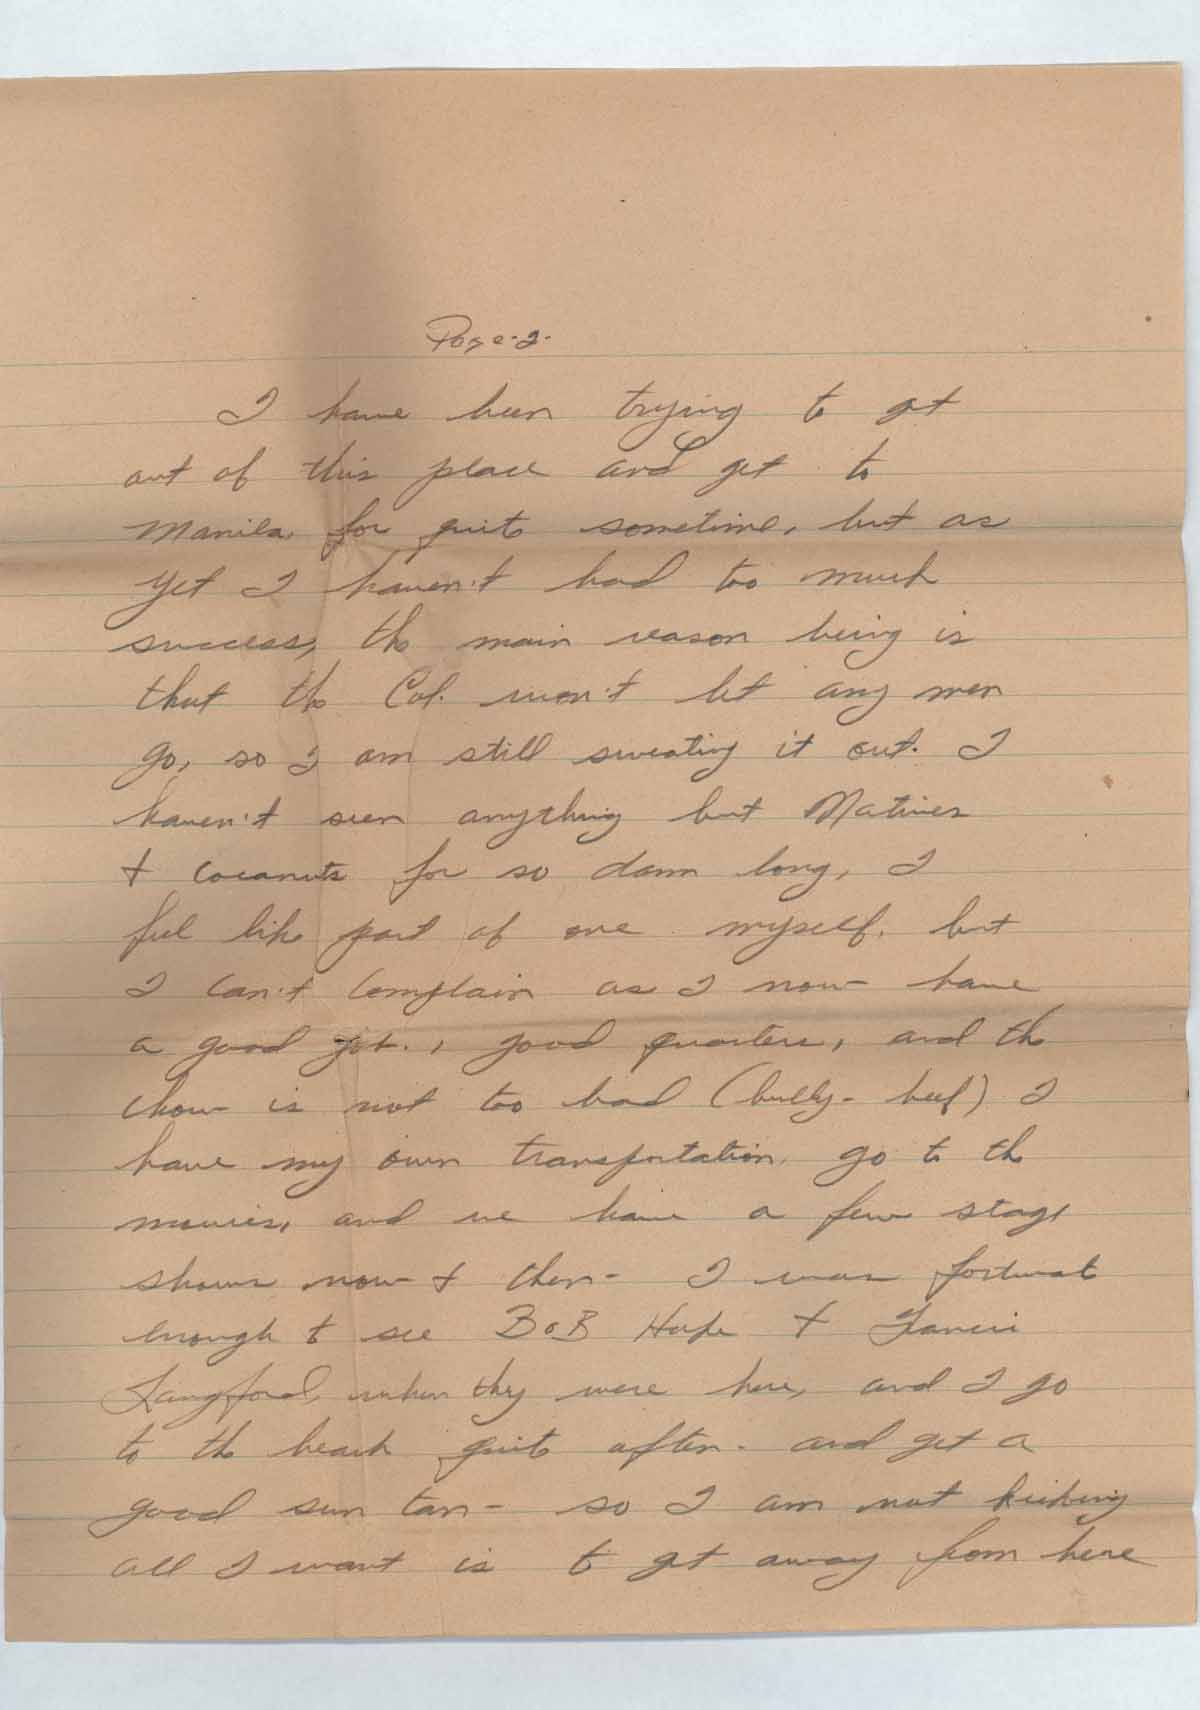 Page-2-
I have been trying to get
out of this place and get to
Manila, for quite sometime, but as
yet I haven't had too much
success, the main reason being is
that the Col. won't let any men
go, so I am still sweating it out. I
haven't seen anything but Natives
+ Coconuts for so damn long, I
feel like part of one myself. but
I can't complain as I now have
a good job., good quarters, and the
chow is not too bad (bully-beef) I
have my own transportation, go to the
movies, and we have a few stage
shows now + then- I was fortunate
enough to see BoB Hope + Francis
Langford, when they were here, and I go
to the beach quite often- and get a
good sun tan- so I am not kicking
all I want is to get away from here